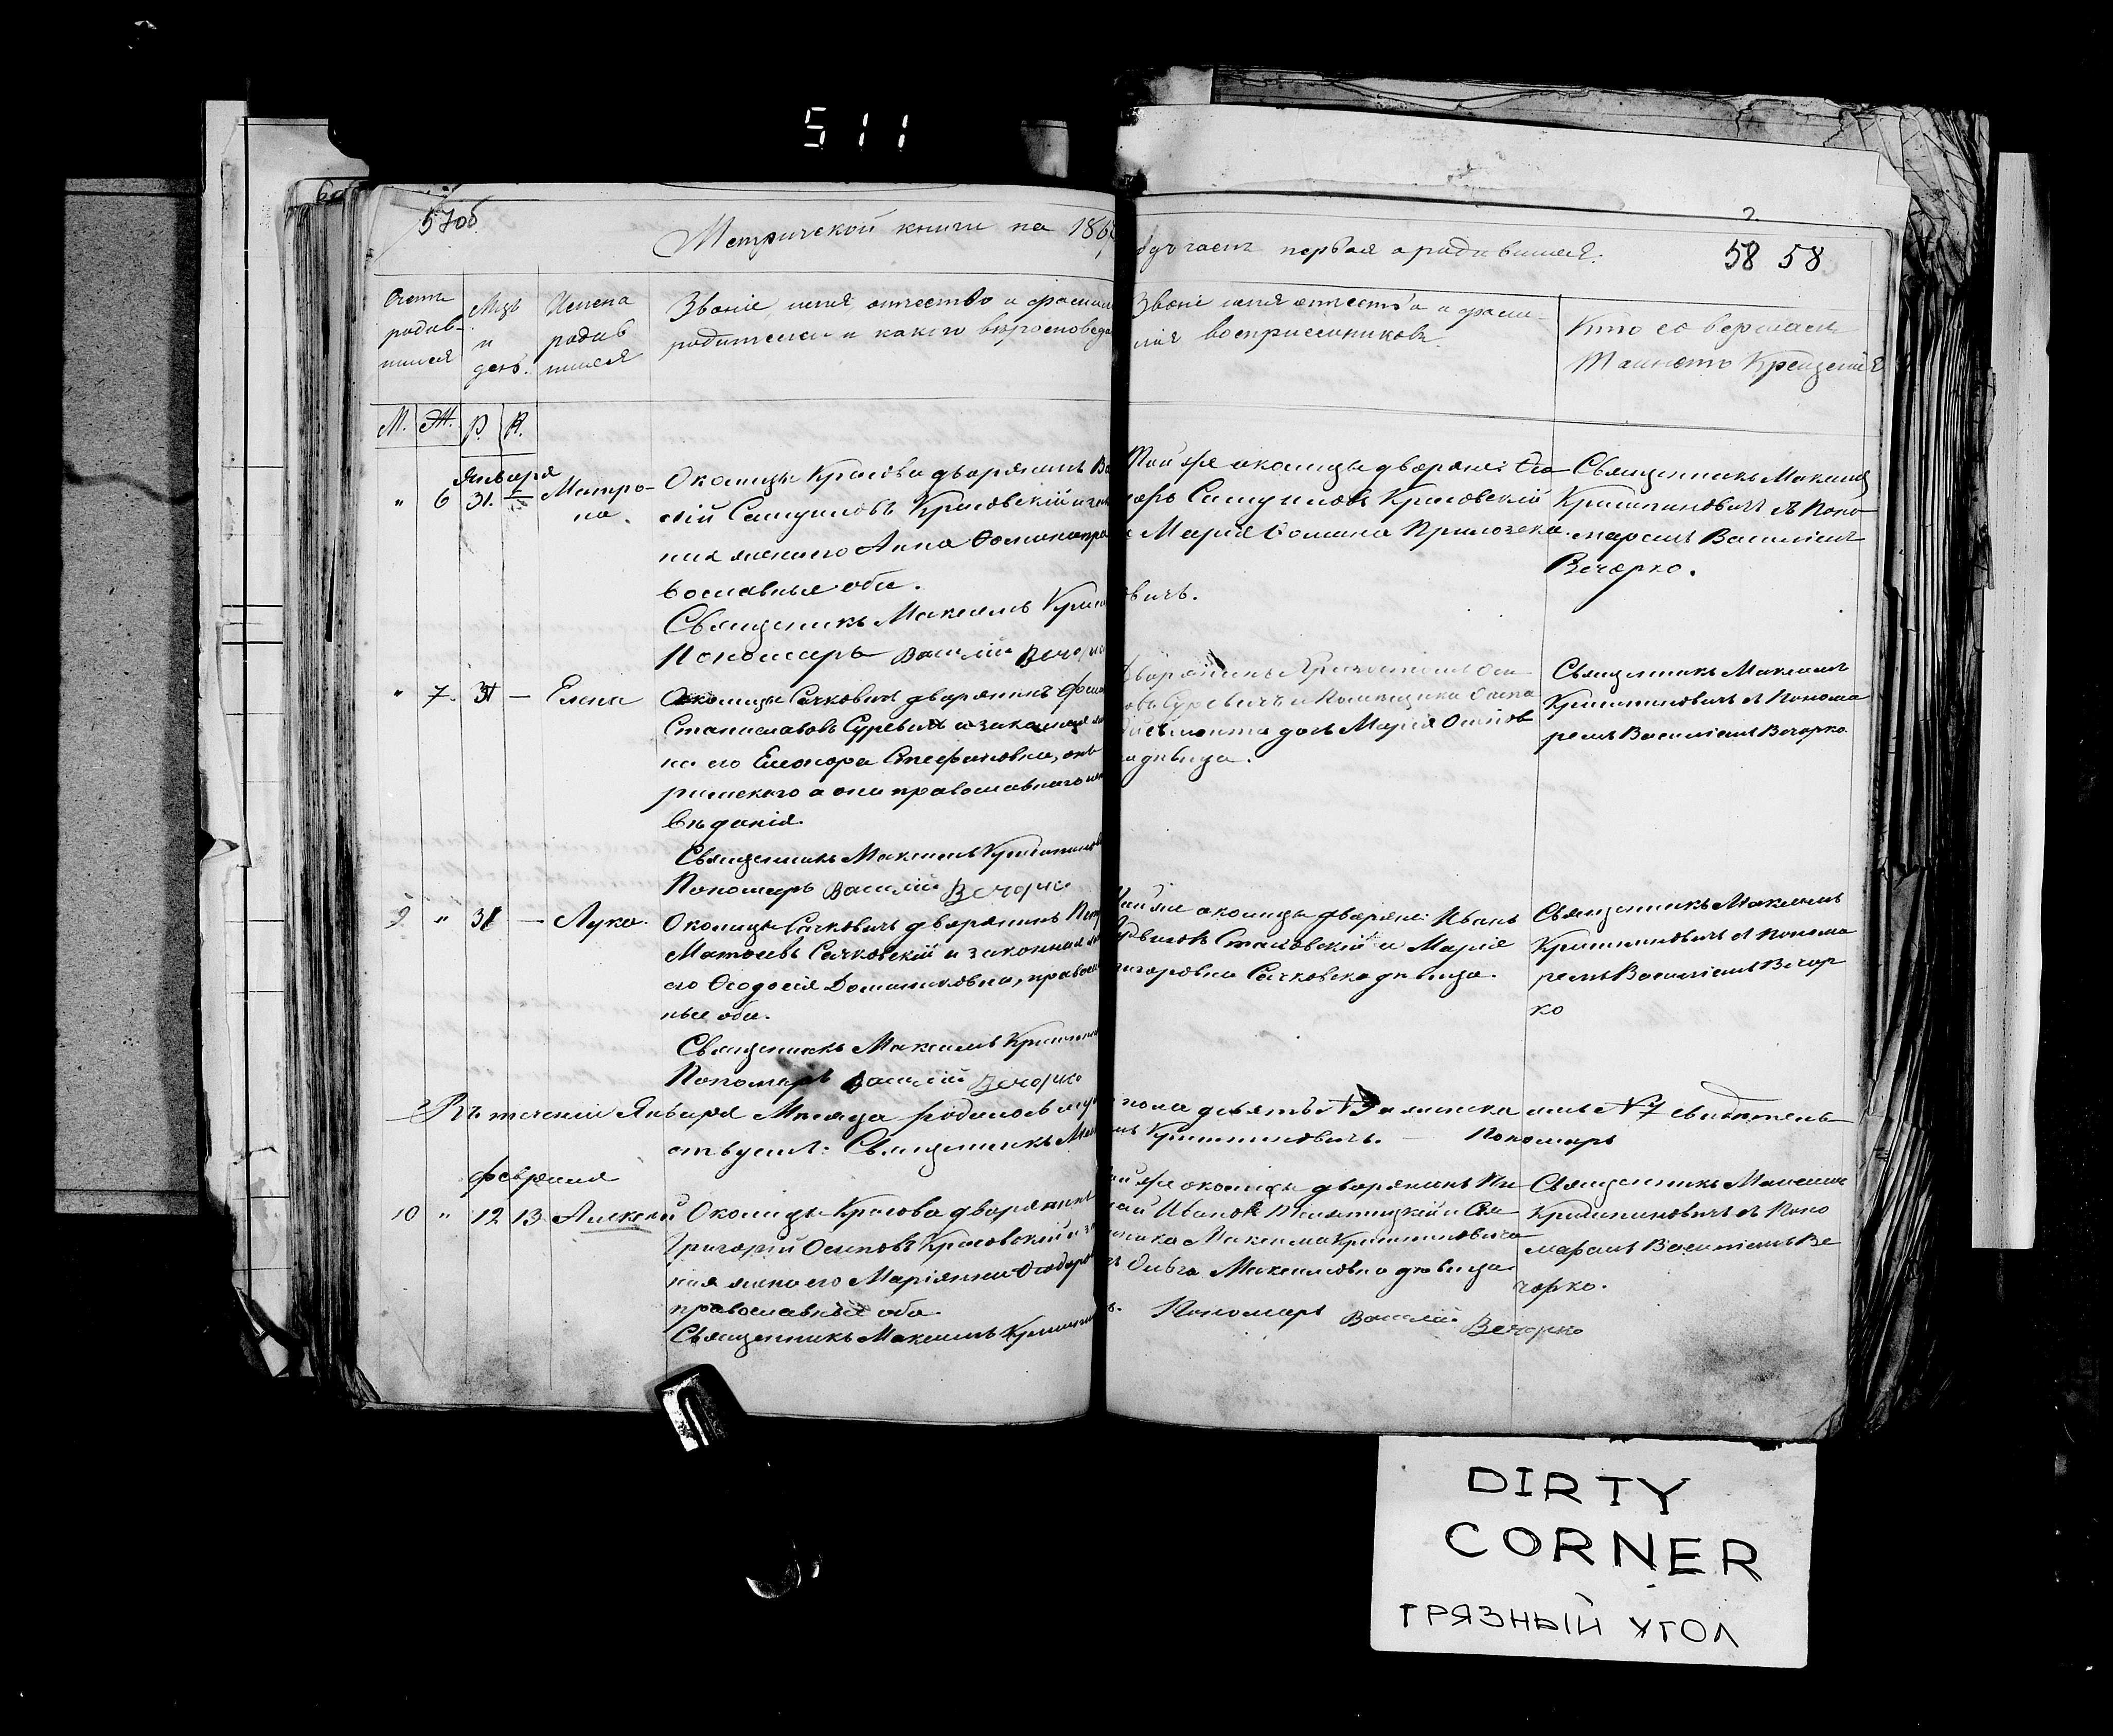 511
57об
Метрической книги на 186
одъ часть первая о родившихся.
2
58 58
Счетъ родив- шихся
Мцъ и день.
Имена родив шихся
Званіе, имя отчество и фамилі
родителей и какого вѣроисповеда
Званіе имя отчество и фами-
лія воспріемниковъ.
Кто совершалъ
Таинство Крещенія
М. Ж. Р. К.
Января
" 6 31. Матро-
на.
Околицы Красова дворянинъ Ва
лій Самуиловъ Красовскій и зако
ная жена его Анна Фомина пра
вославные оба.
Священникъ Максимъ Крис
Пономарь Василій Вечорко
Той же околицы дворяне:
Самуиловъ Красовскій
Марія Фомина
овичъ.
Священникъ Максимъ
съ Поно-
маремъ Василіемъ
Вечорко.
" 7. 31 — Елена
Околицы Сачковичъ дворянинъ Фома
Станиславовъ Суревичъ и законная же
на его Елеонора Стефановна, онъ
римскаго а она православнаго испо
вѣданія.
Священникъ Максимъ
Пономарь Василій Вечорко
Дворянинъ
овъ Суревичъ и Помещика Осипа
дочь Марія Осипов
на дѣвица.
Священникъ Максимъ
съ Понома
ремъ Василіемъ Вечорко
9 " 31 — Лука.
Околицы Сачковичъ дворянинъ Петр
Матвеевъ Сачковскій и законная же
его Ѳеодосія Доминиковна, правосл
ные оба.
Священникъ Максимъ
Пономарь Василій Вечорко
Той же околицы дворяне: Иванъ
и Марія
игоровна Сачковска дѣвица.
Священникъ Максимъ
съ Понома
ремъ Василіемъ Вечор
ко
Въ теченіи Января Мѣсяца родилось муж
пола девять № 9 а женска семь № 7 свидѣтель-
ствуемъ: Священникъ Мак
Пономарь
Февраля
10 " 12 13 Алексѣй
Околицы Красова дворянинъ
Григорій Осиповъ Красовскій и за
ная жена его Маріянна Ѳеодоро
православные оба.
Священникъ Максимъ
ой же околицы дворянинъ Ни
лай Ивановъ и Свя
щенника Максима
Ольга Максимовна дѣвица.
Пономарь Василій Вечорко
Священникъ Максимъ
съ Поно
маремъ Василіемъ Ве
чорко.
DIRTY
CORNER
ГРЯЗНЫЙ УГОЛ